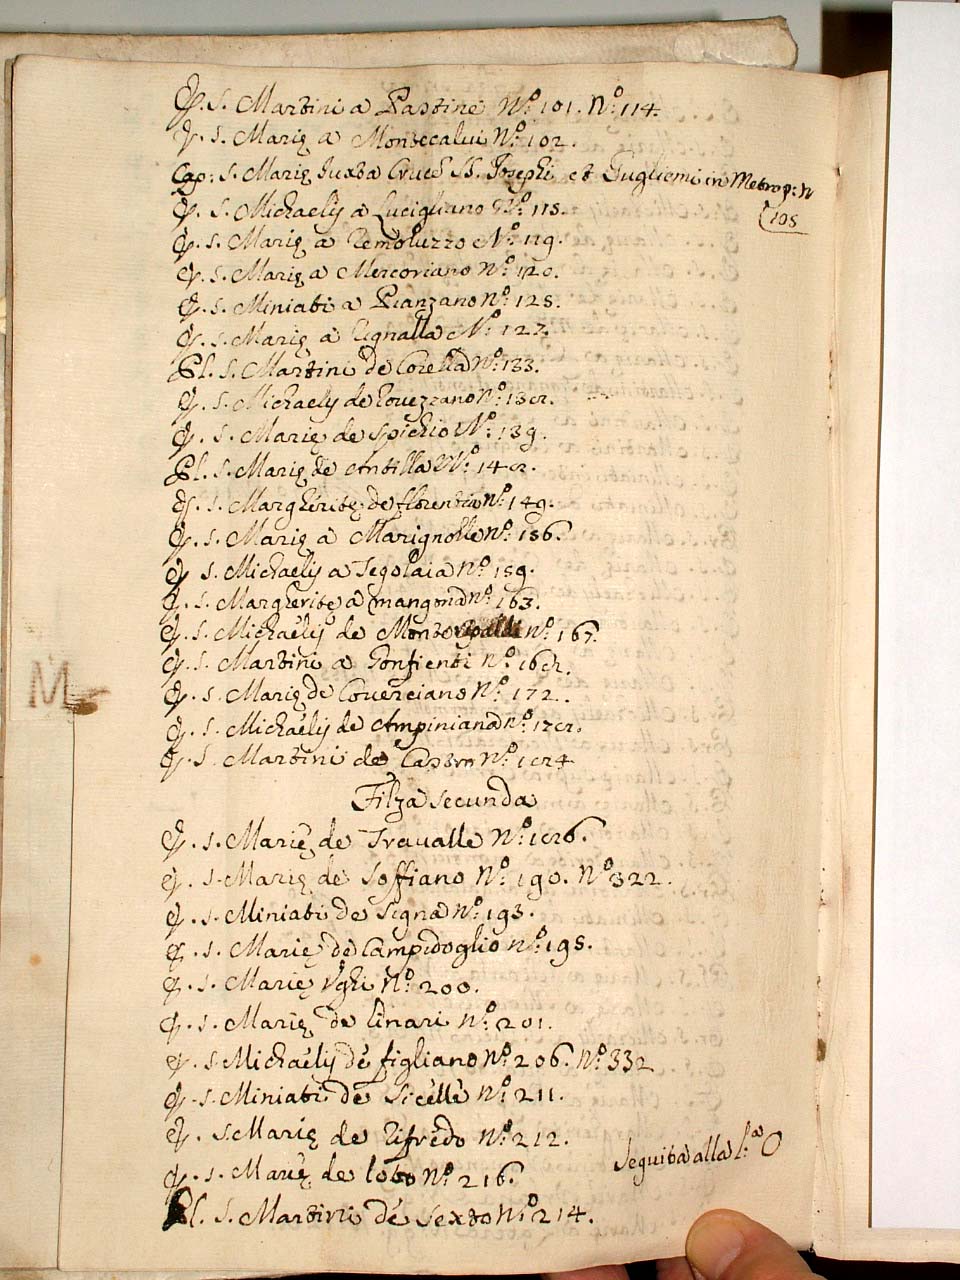 Ec. S. Martini a Pastine N.º 101. N.º 114.
Ec. S. Marię a Montecalui N.º 102.
Cap: S. Marię Iuxta Crucē SS. Josephi et Gugliemi in Metrop: n
105
Ec. S. Michaelis a Lucigliano N.º 115.
Ec. S. Marię a Remoluzzo N.º 119.
Ec. S. Marię a Mercoriano N.º 120.
Ec. S. Miniati a Pianzano N.º 125.
Ec. S. Marię a Rignalla N.º 127.
Pl. S. Martini de Corella N.º 133.
Ec. S. Michaelis de Rouezzano N.º 138.
Ec. S. Marię de Spichio N.º 139.
Pl. S. Marię de Antilla N.º 148.
Ec. S. Margheritę de florentia N.º 149.
Ec. S. Marię a Marignolle N.º 156.
Ec. S. Michaelis a Tegolaia N.º 159.
Ec. S. Margheritę a mangona N.º 163.
Ec. S. Michaelis de Monteripaldi N.º 167.
Ec. S. Martini a Gonfienti N.º 168.
Ec. S. Marię de Couerciano N.º 172.
Ec. S. Michaelis de Ampiniana N.º 178.
Ec. S. Martini de Castro N.º 184
M
Filza secunda
Ec. S. Marię de Traualle N.º 186.
Ec. S. Marię de Soffiano N.º 190. N.º 322.
Ec. S. Miniati de Signa N.º 193.
Ec. S. Marię de Campidoglio N.º 195.
Ec. S. Marię Vghi N.º 200.
Ec. S. Marię de linari N.º 201.
Ec. S. Michaelis de figliano N.º 206. N.º 332
Ec. S. Miniati de Sicelle N.º 211.
Ec. S. Marię de Rifredo N.º 212.
Ec. S. Marię de loto N.º 216.
Seguita alla l.ª O
Pl. S. Martini de Sexto N.º 214.